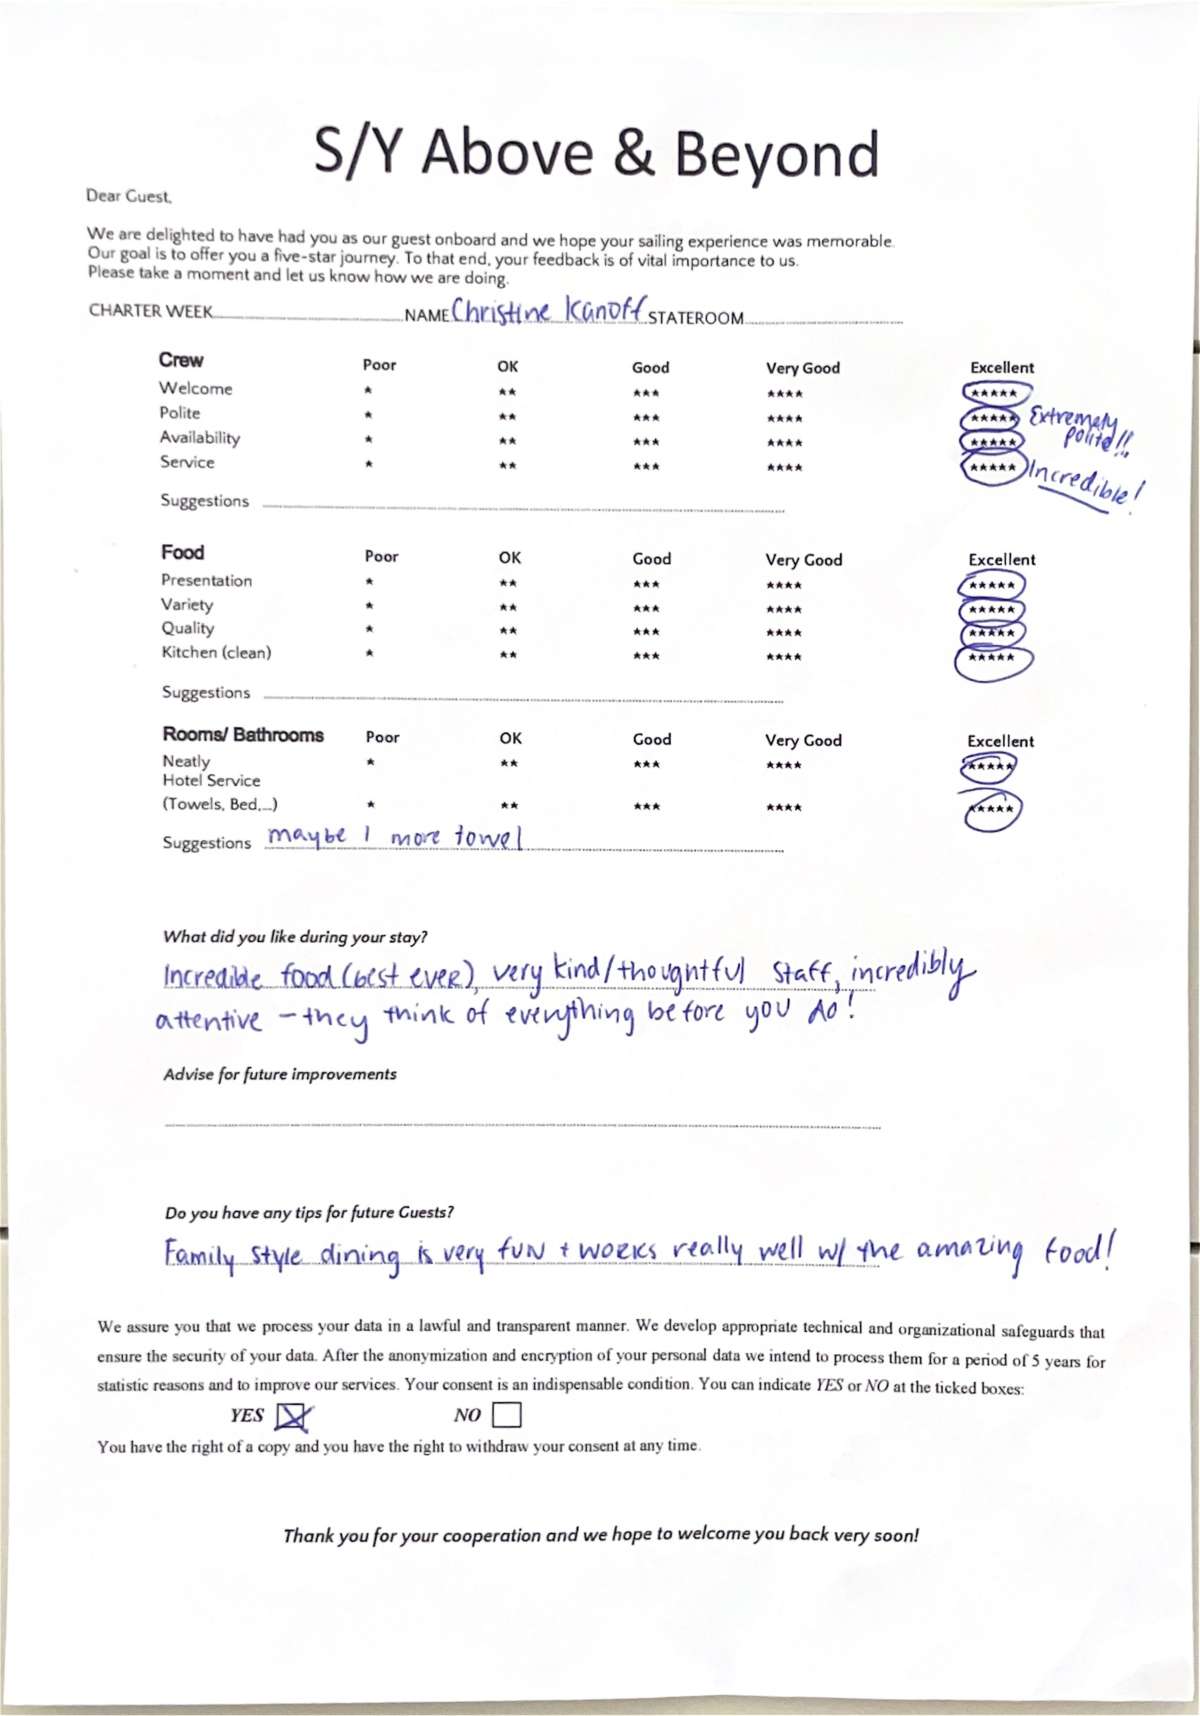 S/Y Above & Beyond
Dear Guest,
We are delighted to have had you as our guest onboard and we hope your sailing experience was memorable.
Our goal is to offer you a five-star journey. To that end, your feedback is of vital importance to us.
Please take a moment and let us know how we are doing.
CHARTER WEEK NAME Christine Kanoff STATEROOM
Crew Poor OK Good Very Good Excellent
Welcome * ** *** **** *****
Polite * ** *** **** ***** Extremely polite!!
Availability * ** *** **** *****
Service * ** *** **** ***** Incredible!
Suggestions
Food Poor OK Good Very Good Excellent
Presentation * ** *** **** *****
Variety * ** *** **** *****
Quality * ** *** **** *****
Kitchen (clean) * ** *** **** *****
Suggestions
Rooms/ Bathrooms Poor OK Good Very Good Excellent
Neatly * ** *** **** *****
Hotel Service
(Towels, Bed,...) * ** *** **** *****
Suggestions maybe 1 more towel
What did you like during your stay?
Incredible food (best ever), very kind/thoughtful staff, incredibly
attentive - they think of everything before you do!
Advise for future improvements
Do you have any tips for future Guests?
Family style dining is very fun + works really well w/ the amazing food!
We assure you that we process your data in a lawful and transparent manner. We develop appropriate technical and organizational safeguards that
ensure the security of your data. After the anonymization and encryption of your personal data we intend to process them for a period of 5 years for
statistic reasons and to improve our services. Your consent is an indispensable condition. You can indicate YES or NO at the ticked boxes:
YES NO
You have the right of a copy and you have the right to withdraw your consent at any time.
Thank you for your cooperation and we hope to welcome you back very soon!